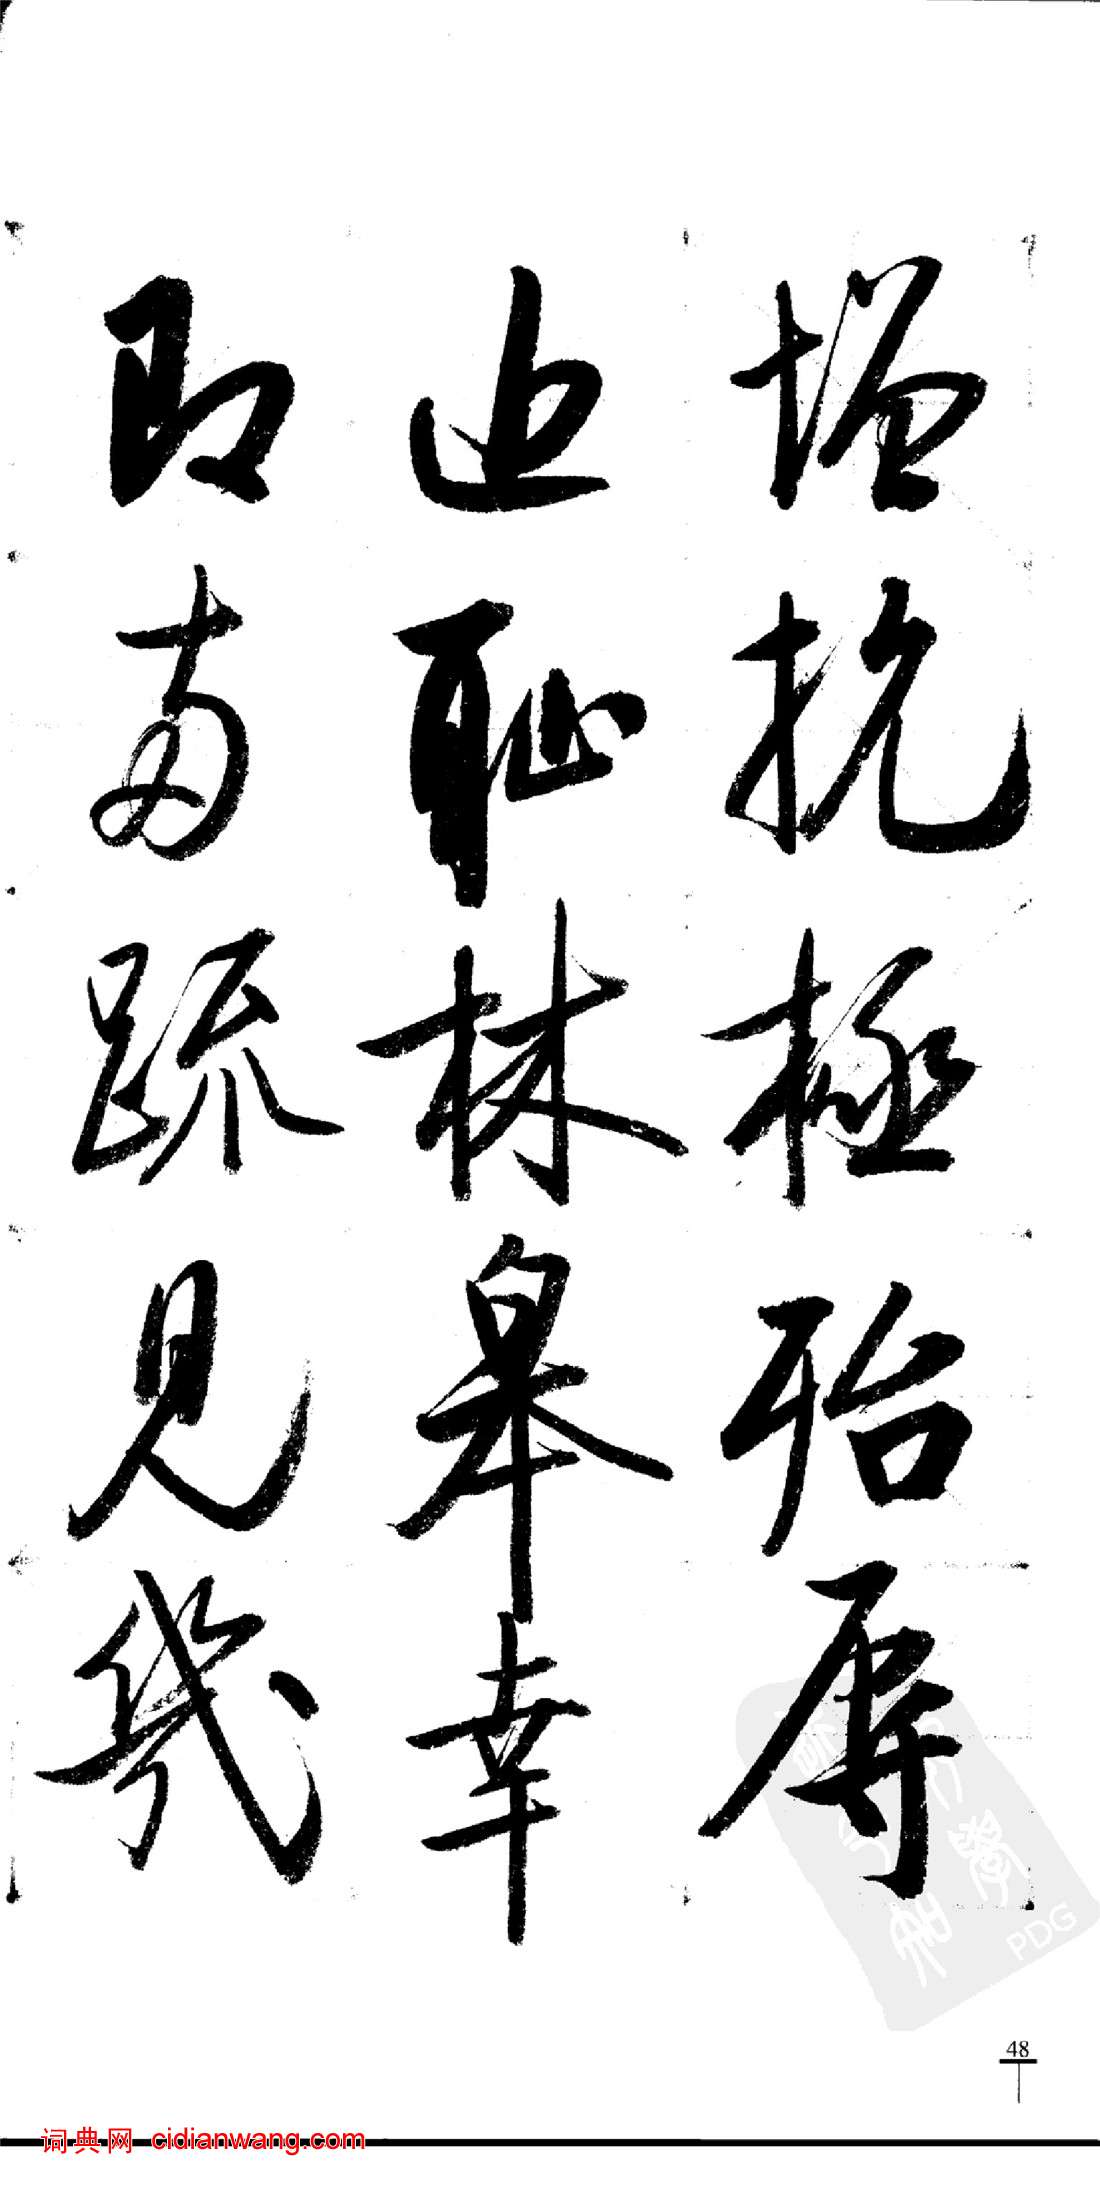 增抗極殆辱
近恥林皋幸
即兩疏見幾
48
词典网 cidianwang.com
PDG